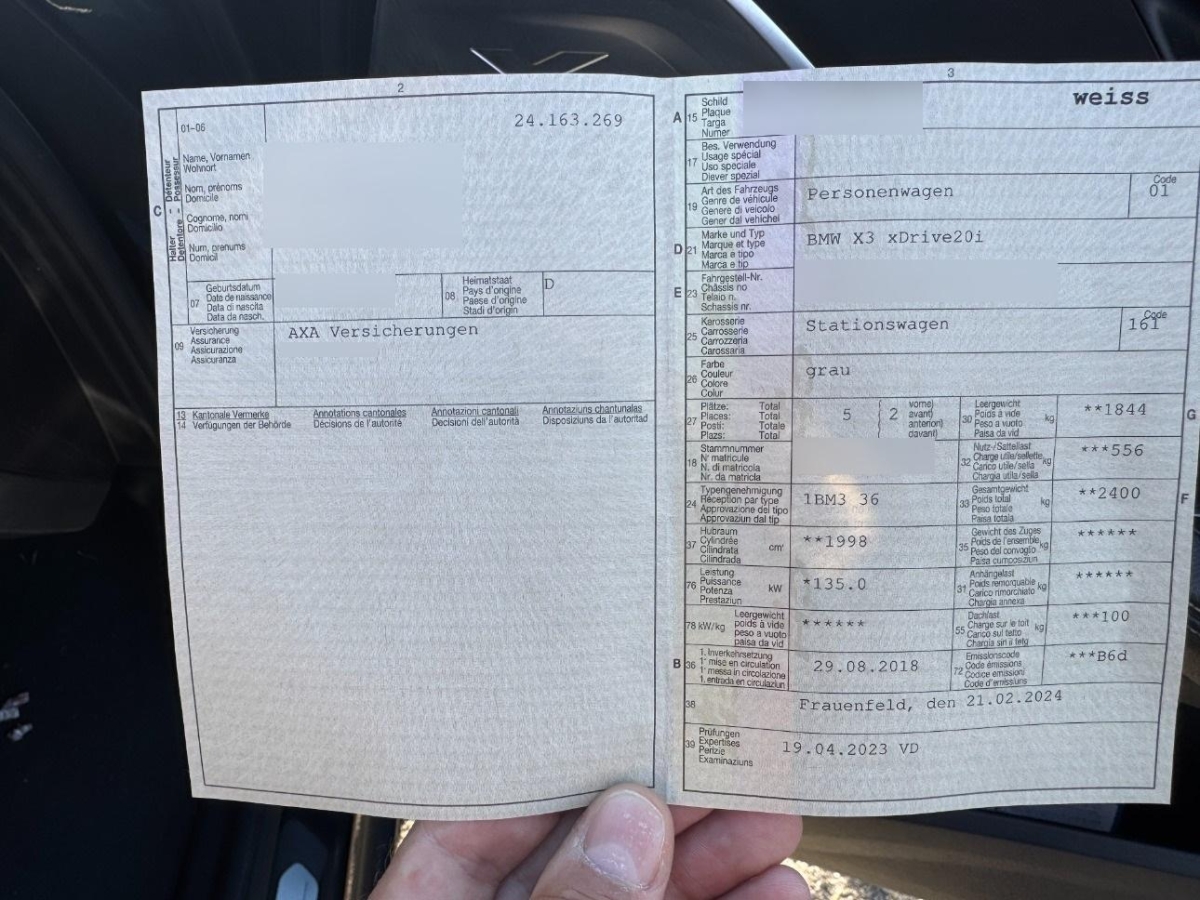 2
01-06
24.163.269
C
Halter - Détenteur
Detentore - Possessur
Name, Vornamen
Wohnort
Nom, prénoms
Domicile
Cognome, nomi
Domicilio
Num, prenums
Domicil
07
Geburtsdatum
Date de naissance
Data di nascita
Data da nasch.
08
Heimatstaat
Pays d'origine
Paese d'origine
Stadi d'origin
D
09
Versicherung
Assurance
Assicurazione
Assicuranza
AXA Versicherungen
13
14
Kantonale Vermerke
Verfügungen der Behörde
Annotations cantonales
Décisions de l'autorité
Annotazioni cantonali
Decisioni dell'autorità
Annotaziuns chantunalas
Disposiziuns da l'autoritad
3
A
15
Schild
Plaque
Targa
Numer
weiss
17
Bes. Verwendung
Usage spécial
Uso speciale
Diever spezial
19
Art des Fahrzeugs
Genre de véhicule
Genere di veicolo
Gener dal vehichel
Personenwagen
Code
01
D
21
Marke und Typ
Marque et type
Marca e tipo
Marca e tip
BMW X3 xDrive20i
E
23
Fahrgestell-Nr.
Châssis no
Telaio n.
Schassis nr.
25
Karosserie
Carrosserie
Carrozzeria
Carossaria
Stationswagen
Code
161
26
Farbe
Couleur
Colore
Colur
grau
27
Plätze: Total
Places: Total
Posti: Totale
Plazs: Total
5
2
vorne)
avant)
anteriori)
davant)
30
Leergewicht
Poids à vide
Peso a vuoto
Paisa da vid
kg
**1844
G
18
Stammnummer
N° matricule
N. di matricola
Nr. da matricla
32
Nutz-/Sattellast
Charge utile/sellette
Carico utile/sella
Chargia utila/sella
kg
***556
24
Typengenehmigung
Réception par type
Approvazione del tipo
Approvaziun dal tip
1BM3 36
33
Gesamtgewicht
Poids total
Peso totale
Paisa totala
kg
**2400
F
37
Hubraum
Cylindrée
Cilindrata
Cilindrada
cm³
**1998
35
Gewicht des Zuges
Poids de l'ensemble
Peso del convoglio
Paisa cumposiziun
kg
******
76
Leistung
Puissance
Potenza
Prestaziun
kW
*135.0
31
Anhängelast
Poids remorquable
Carico rimorchiato
Chargia annexa
kg
******
78 kW/kg
Leergewicht
poids à vide
peso a vuoto
paisa da vid
******
55
Dachlast
Charge sur le toit
Carico sul tetto
Chargia sin il tetg
kg
***100
B
36
1. Inverkehrsetzung
1re mise en circulation
1a messa in circolazione
1. entrada en circulaziun
29.08.2018
72
Emissionscode
Code émissions
Codice emissioni
Code d'emissiuns
***B6d
38
Frauenfeld, den 21.02.2024
39
Prüfungen
Expertises
Perizie
Examinaziuns
19.04.2023 VD